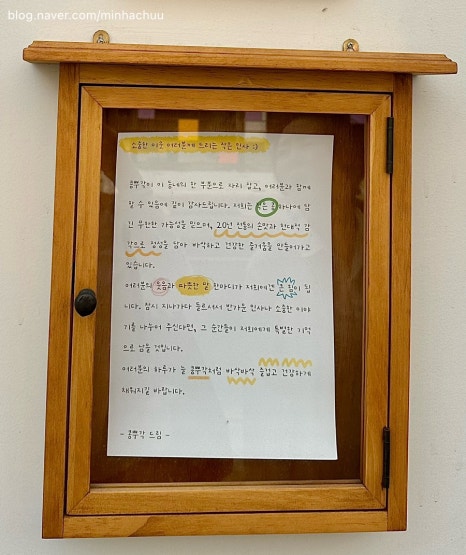 blog.naver.com/minhachuu
소중한 이웃 여러분께 드리는 작은 인사 :)
콩뿌각이 이 동네의 한 부분으로 자리 잡고, 여러분과 함께
할 수 있음에 깊이 감사드립니다. 저희는 작은 콩 하나에 담
긴 무한한 가능성을 믿으며, 20년 전통의 손맛과 현대적 감
각으로 정성을 담아 바삭하고 건강한 즐거움을 만들어가고
있습니다.
여러분의 웃음과 따뜻한 말 한마디가 저희에겐 큰 힘이 됩
니다. 잠시 지나가다 들르셔서 반가운 인사나 소중한 이야
기를 나누어 주신다면, 그 순간들이 저희에게 특별한 기억
으로 남을 것입니다.
여러분의 하루가 늘 콩뿌각처럼 바삭바삭 즐겁고 건강하게
채워지길 바랍니다.
- 콩뿌각 드림 -